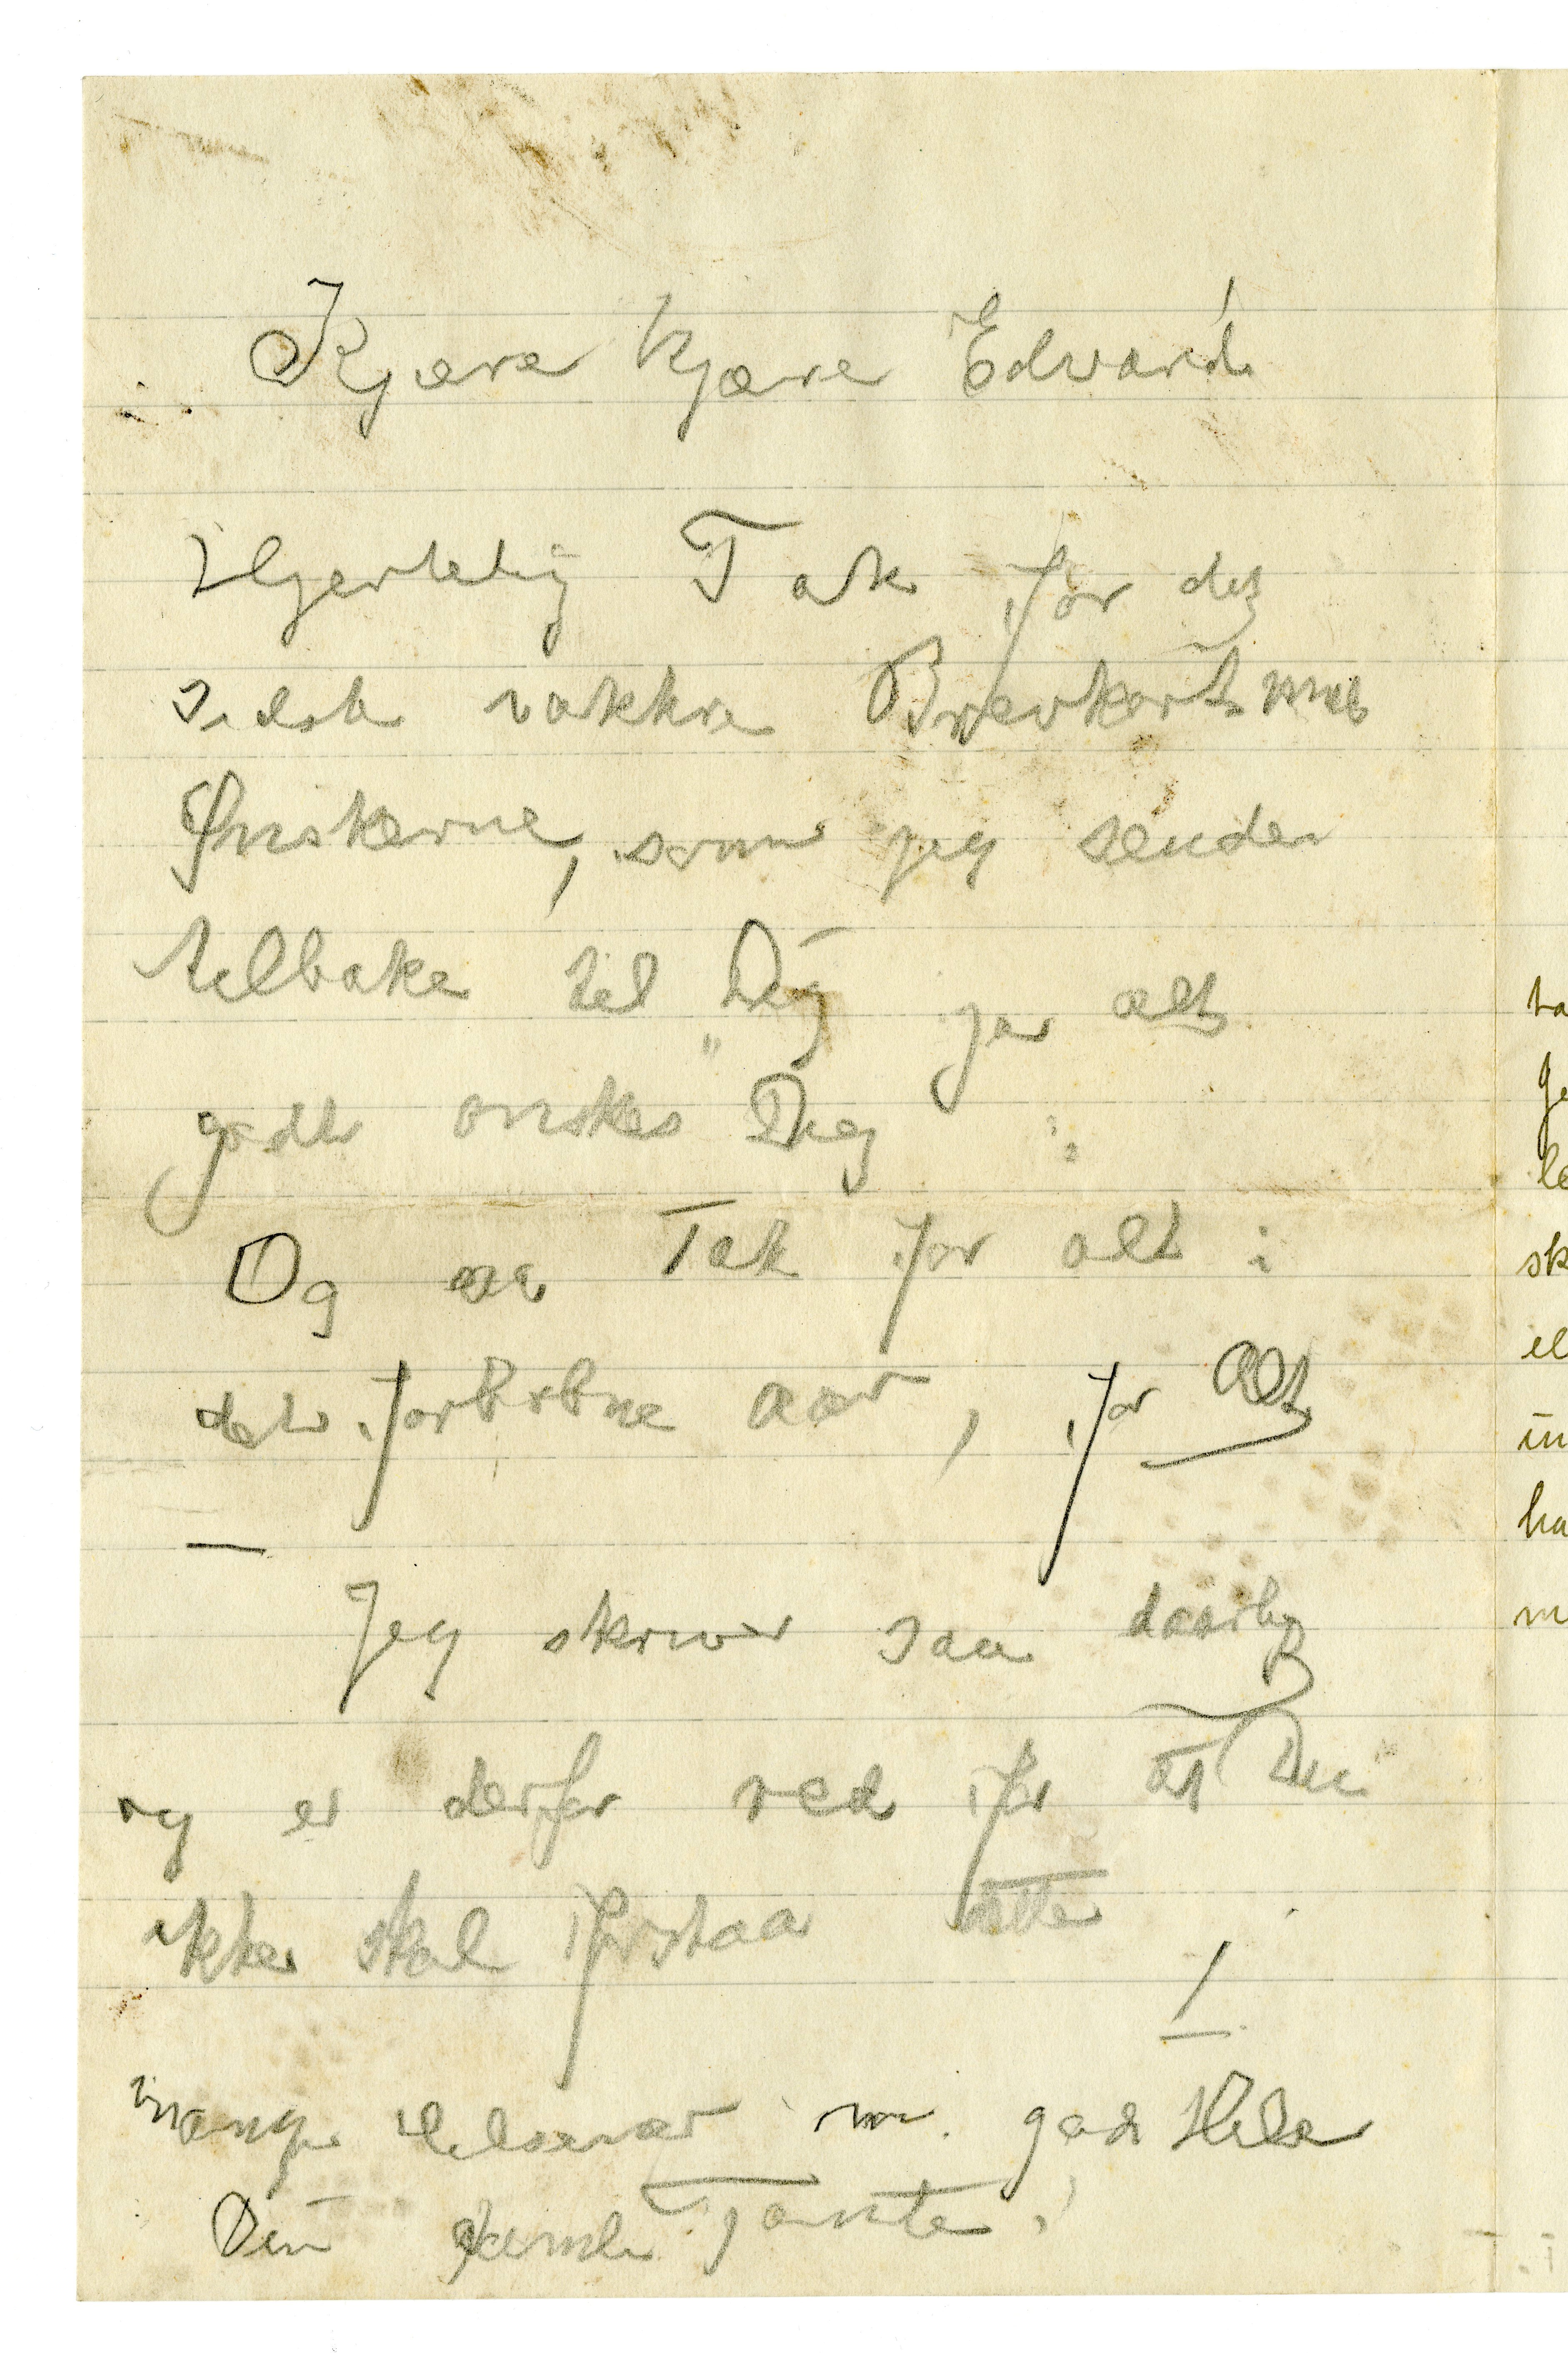 Kjære kjære Edvard!
Hjertelig Tak for det
sidste vakkre Brevkort med
Ønskerne, som jeg sender
tilbake til Dig for alt
godt ønskes Dig
Og saa Tak for alt i
det forløbne Aar, for Alt
—
Jeg skriver saa daarlig
og er derfor red for at Du
ikke skal forstaa dette
Mange Helsener m. god Hilsen
Din gamle Tante!
ta
ge
le
sk
el
in
ha
m